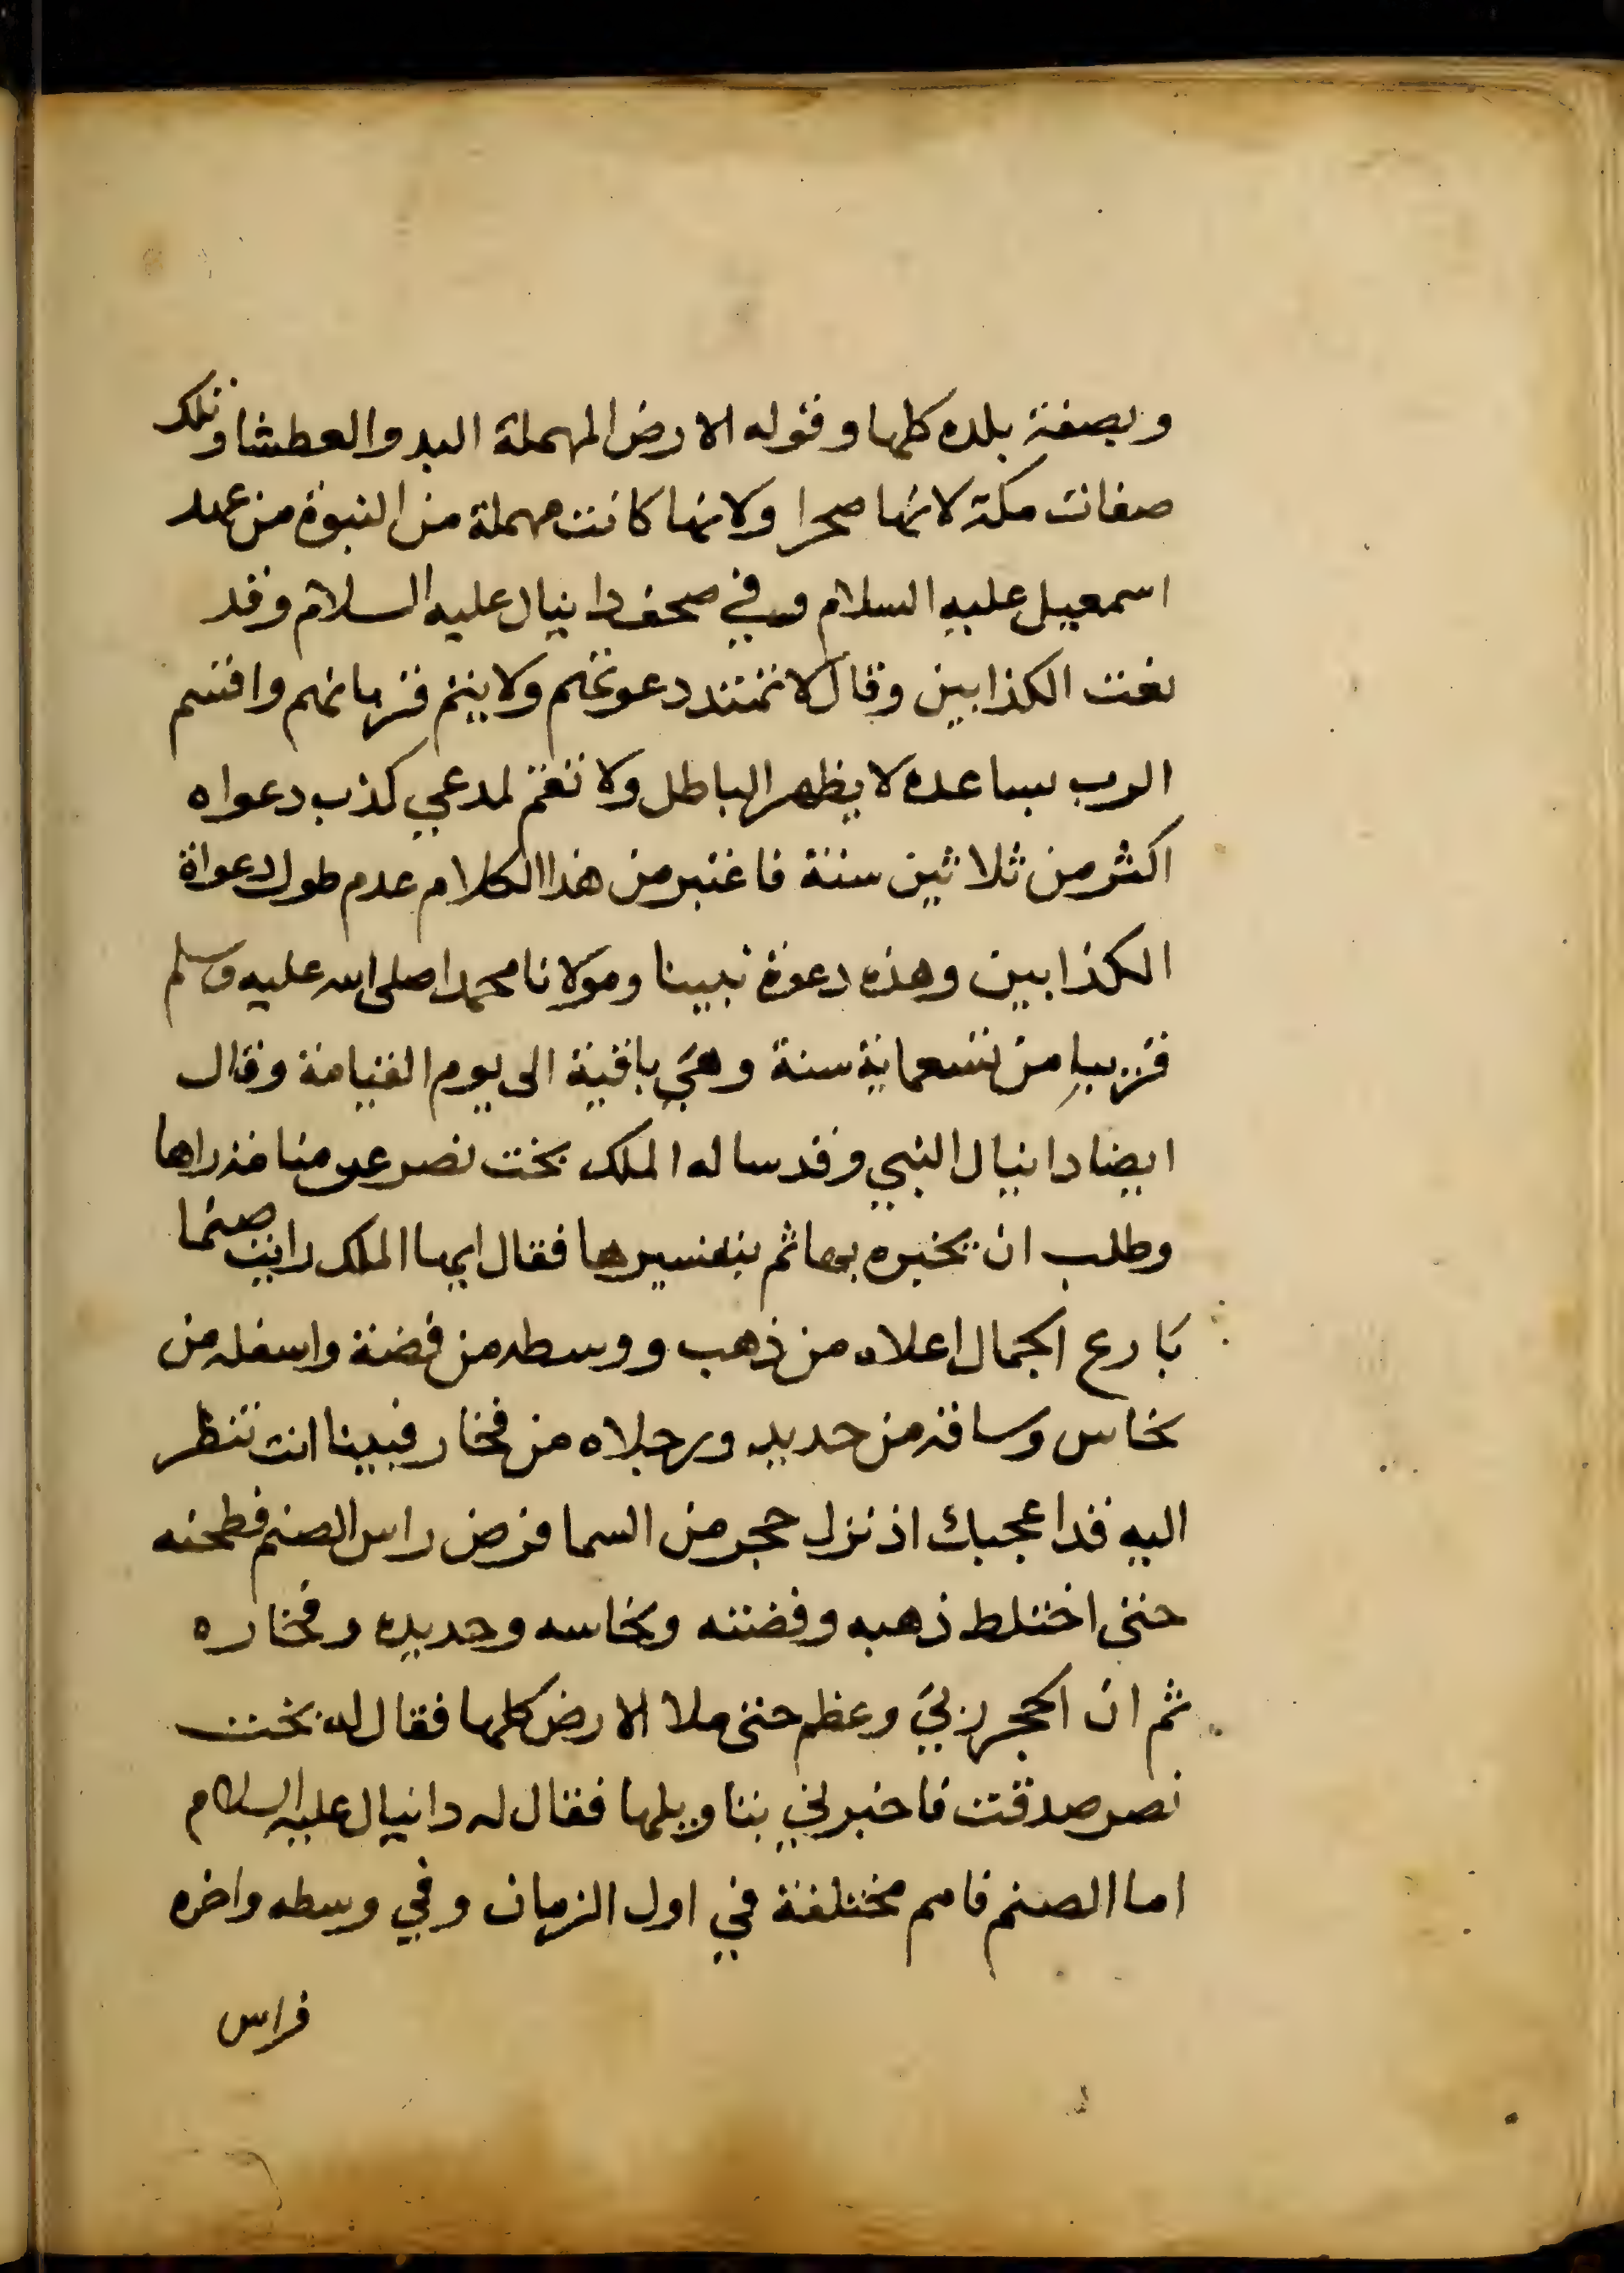 وبصفة بلده كلها وقوله الارض المهملة البدو العطشا وتلك
صفات مكة لانها صحرا ولانها كانت مهملة من النبوة من عهد
اسمعيل عليه السلام وفي صحف دانيال عليه السلام وقد
نعت الكذابين وقال لا تمتد دعوتهم ولا يتم قربانهم واقسم
الرب بساعده لا يظهر الباطل ولا تقم لمدعي كذب دعواه
اكثر من ثلاثين سنة فاعتبر من هذا الكلام عدم طول دعواة
الكذابين وهذه دعوة نبينا ومولانا محمدا صلى الله عليه وسلم
قريبا من تسعماية سنة وهي باقية الى يوم القيامة وقال
ايضا دانيال النبي وقد ساله الملك بخت نصر عن منامة راها
وطلب ان يخبره بها ثم بتفسيرها فقال ايها الملك رايت صنما
بارع الجمال اعلاه من ذهب ووسطه من فضة واسفله من
نحاس وساقه من حديد ورجلاه من فخار فبينا انت تنظر
اليه قد اعجبك اذ نزل حجر من السما فرض راس الصنم فطحنه
حتى اختلط ذهبه وفضته ونحاسه وحديده وفخاره
ثم ان الحجر ربي وعظم حتى ملا الارض كلها فقال له بخت
نصر صدقت فاخبرني بتاويلها فقال له دانيال عليه السلام
اما الصنم فامم مختلفة في اول الزمان وفي وسطه واخره
فراس